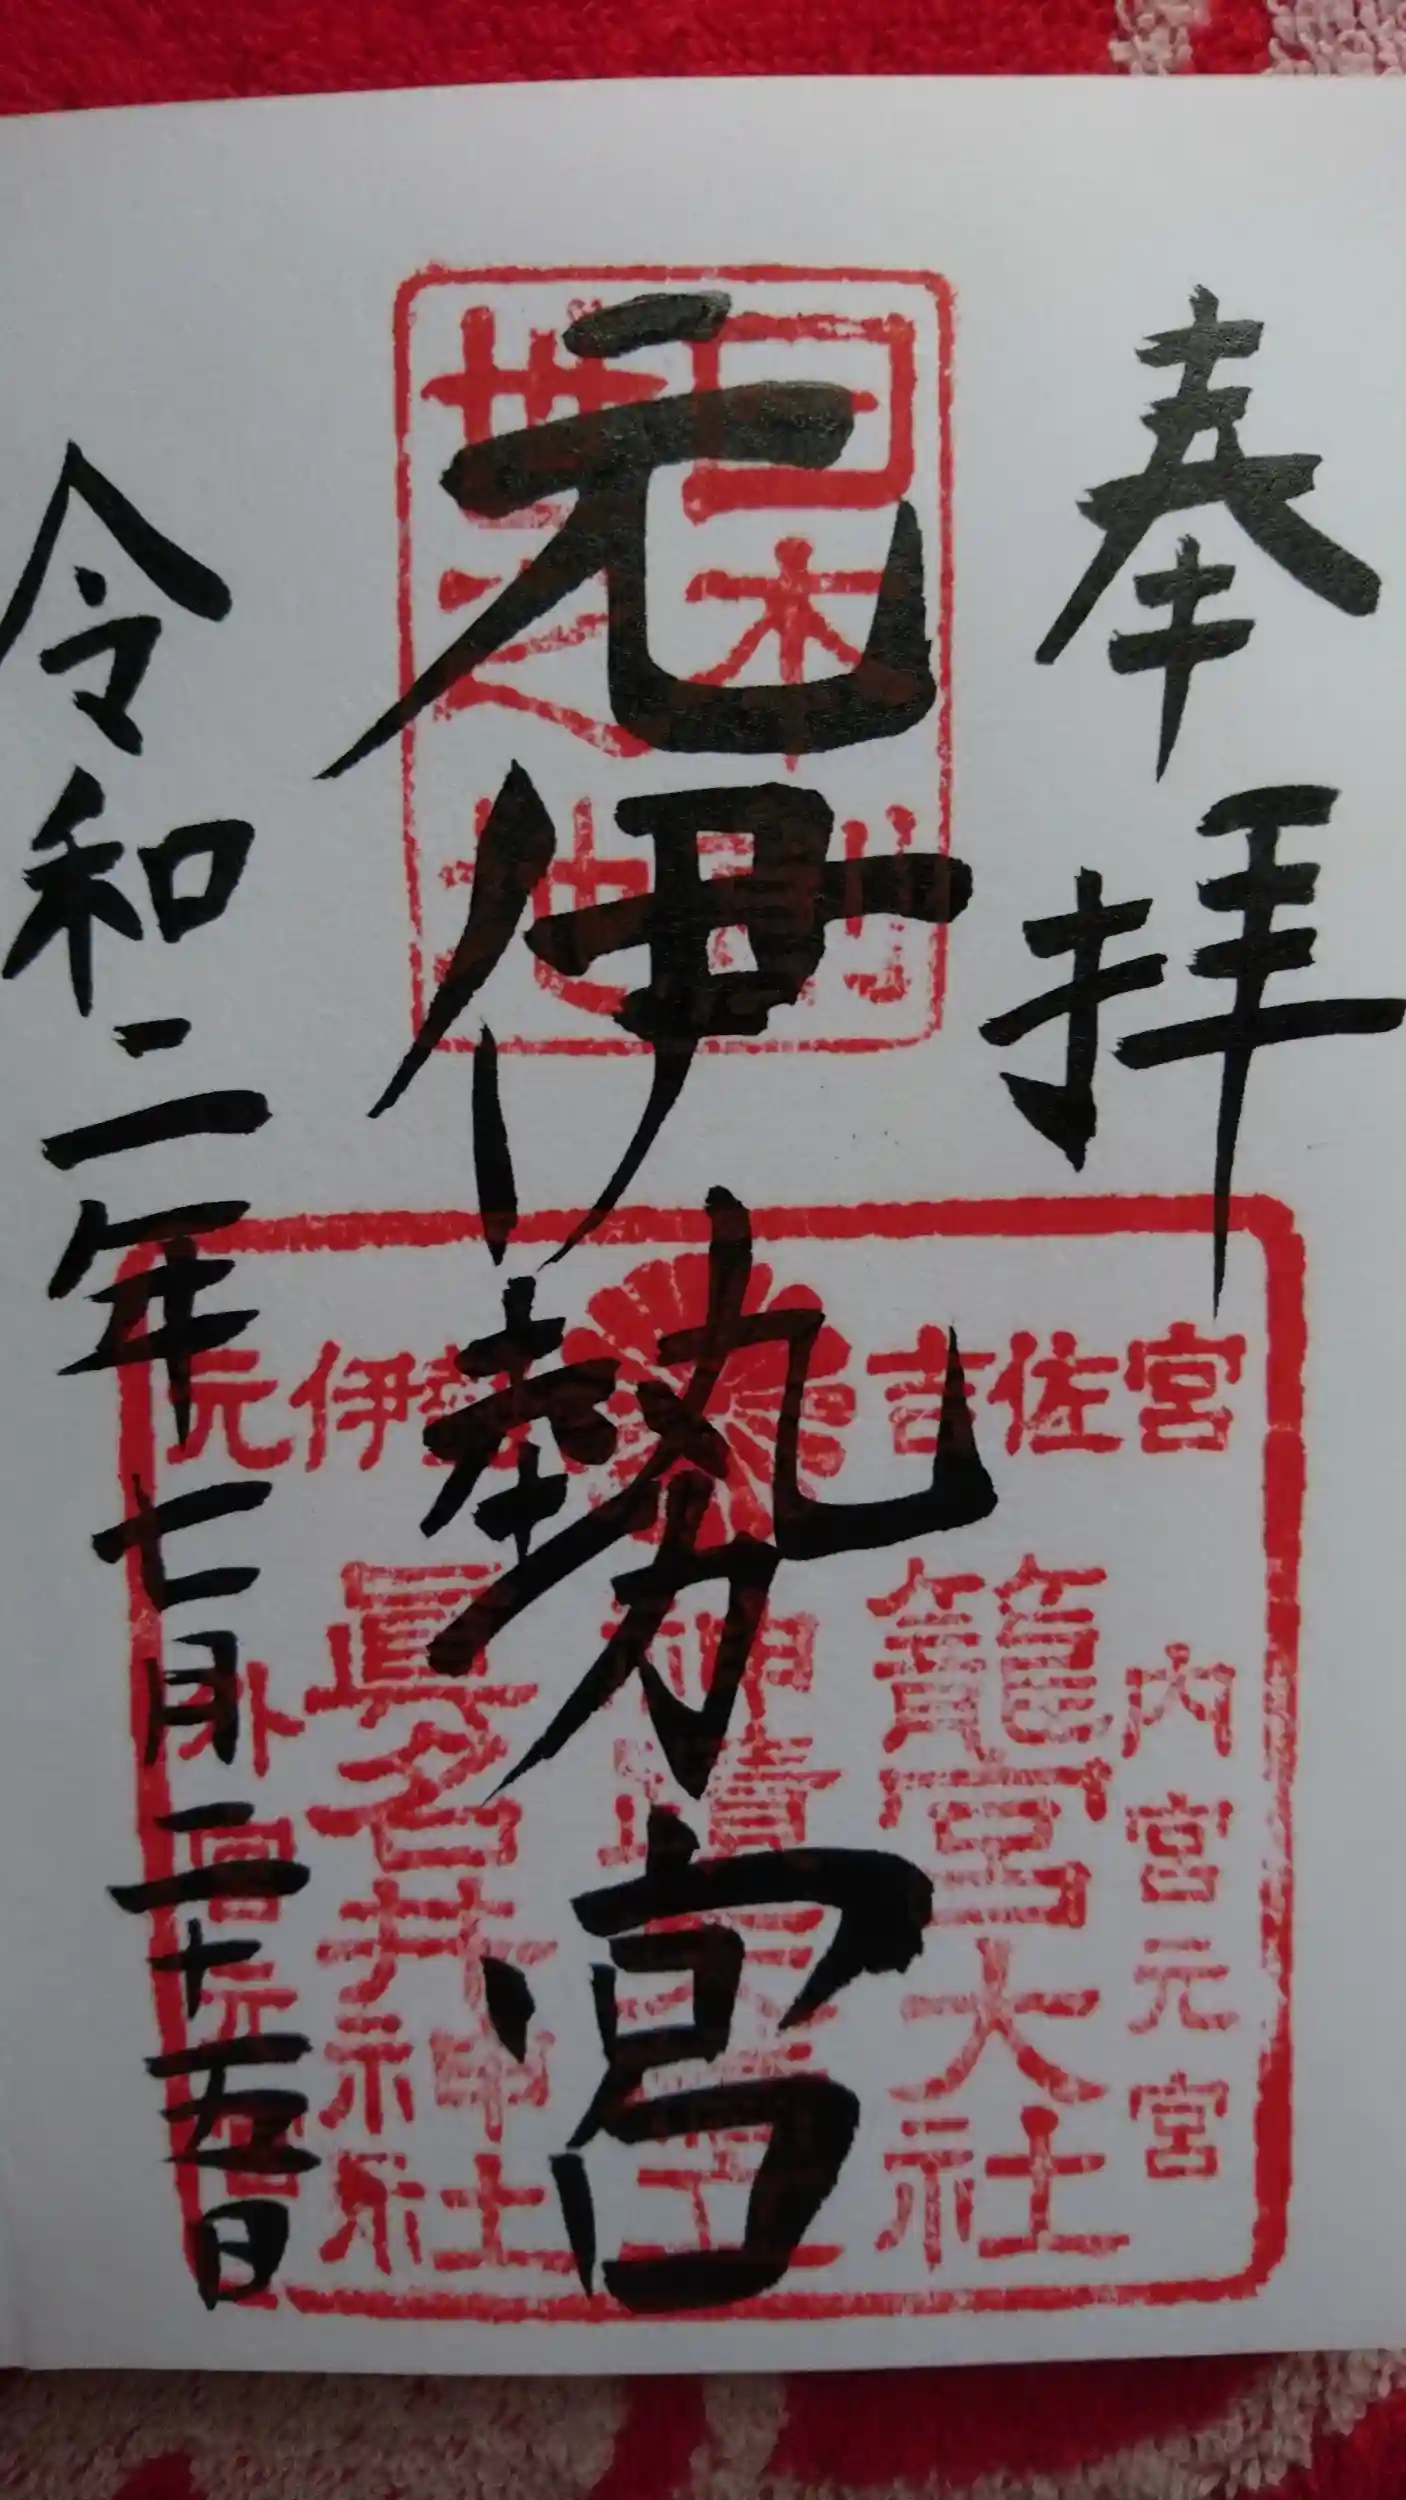 奉拝
元伊勢宮
令和二年七月二十五日
日本最
丗之地
元伊勢 吉佐宮
内宮元宮
籠宮大社
眞名井神社
外宮元宮